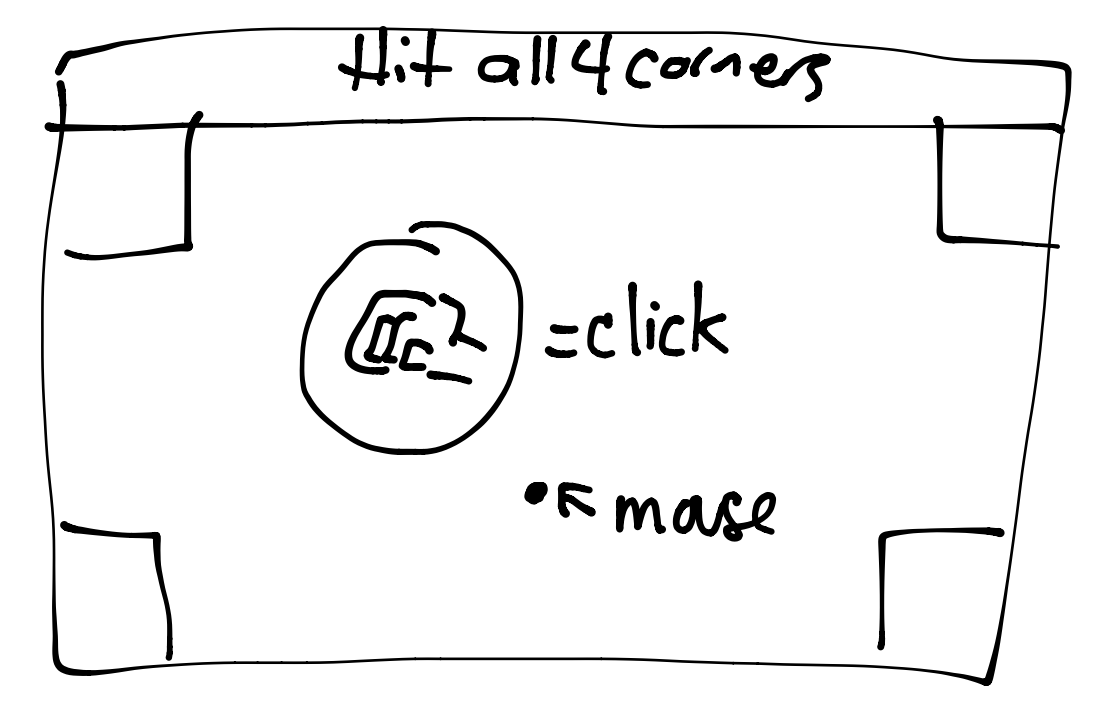 Hit all 4 corners
=click
mase